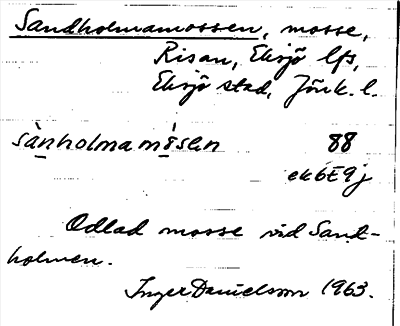 Sandholmamossen, mosse,
Risan, Eksjö lfs,
Eksjö stad, Jönk. l.
sànholmamåsen 88
ek6E9j
Odlad mosse vid Sand-
holmen.
Inger Danielsson 1963.